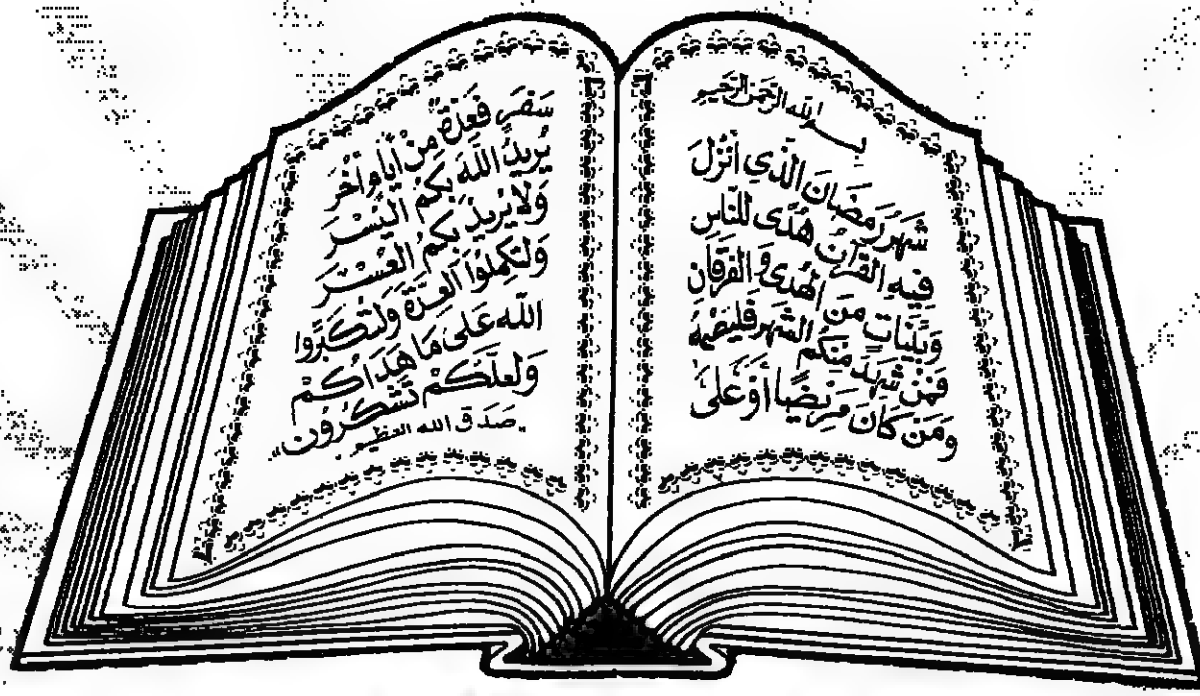 بسم الله الرحمن الرحيم
شَهْرُ رَمَضَانَ الَّذِي أُنْزِلَ
فِيهِ القُرْآنُ هُدًى لِلنَّاسِ
وَبَيِّنَاتٍ مِنَ الهُدَى وَالفُرْقَانِ
فَمَنْ شَهِدَ مِنْكُمُ الشَّهْرَ فَلْيَصُمْهُ
وَمَنْ كَانَ مَرِيضًا أَوْ عَلَى
سَفَرٍ فَعِدَّةٌ مِنْ أَيَّامٍ أُخَرَ
يُرِيدُ اللَّهُ بِكُمُ اليُسْرَ
وَلَا يُرِيدُ بِكُمُ العُسْرَ
وَلِتُكْمِلُوا العِدَّةَ وَلِتُكَبِّرُوا
اللَّهَ عَلَى مَا هَدَاكُمْ
وَلَعَلَّكُمْ تَشْكُرُونَ
صدق الله العظيم